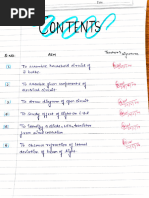 CONTENTS
S.NO. Aim Teacher's signature
1 To assemble household circuit of 3 bulbs
2 To assemble given components of electrical circuits
3 To draw diagram of open circuit
4 To study effect of
5 To identify a diode, LED, transistor from mixed collection
6 To observe refraction of lateral deviation of beam of light